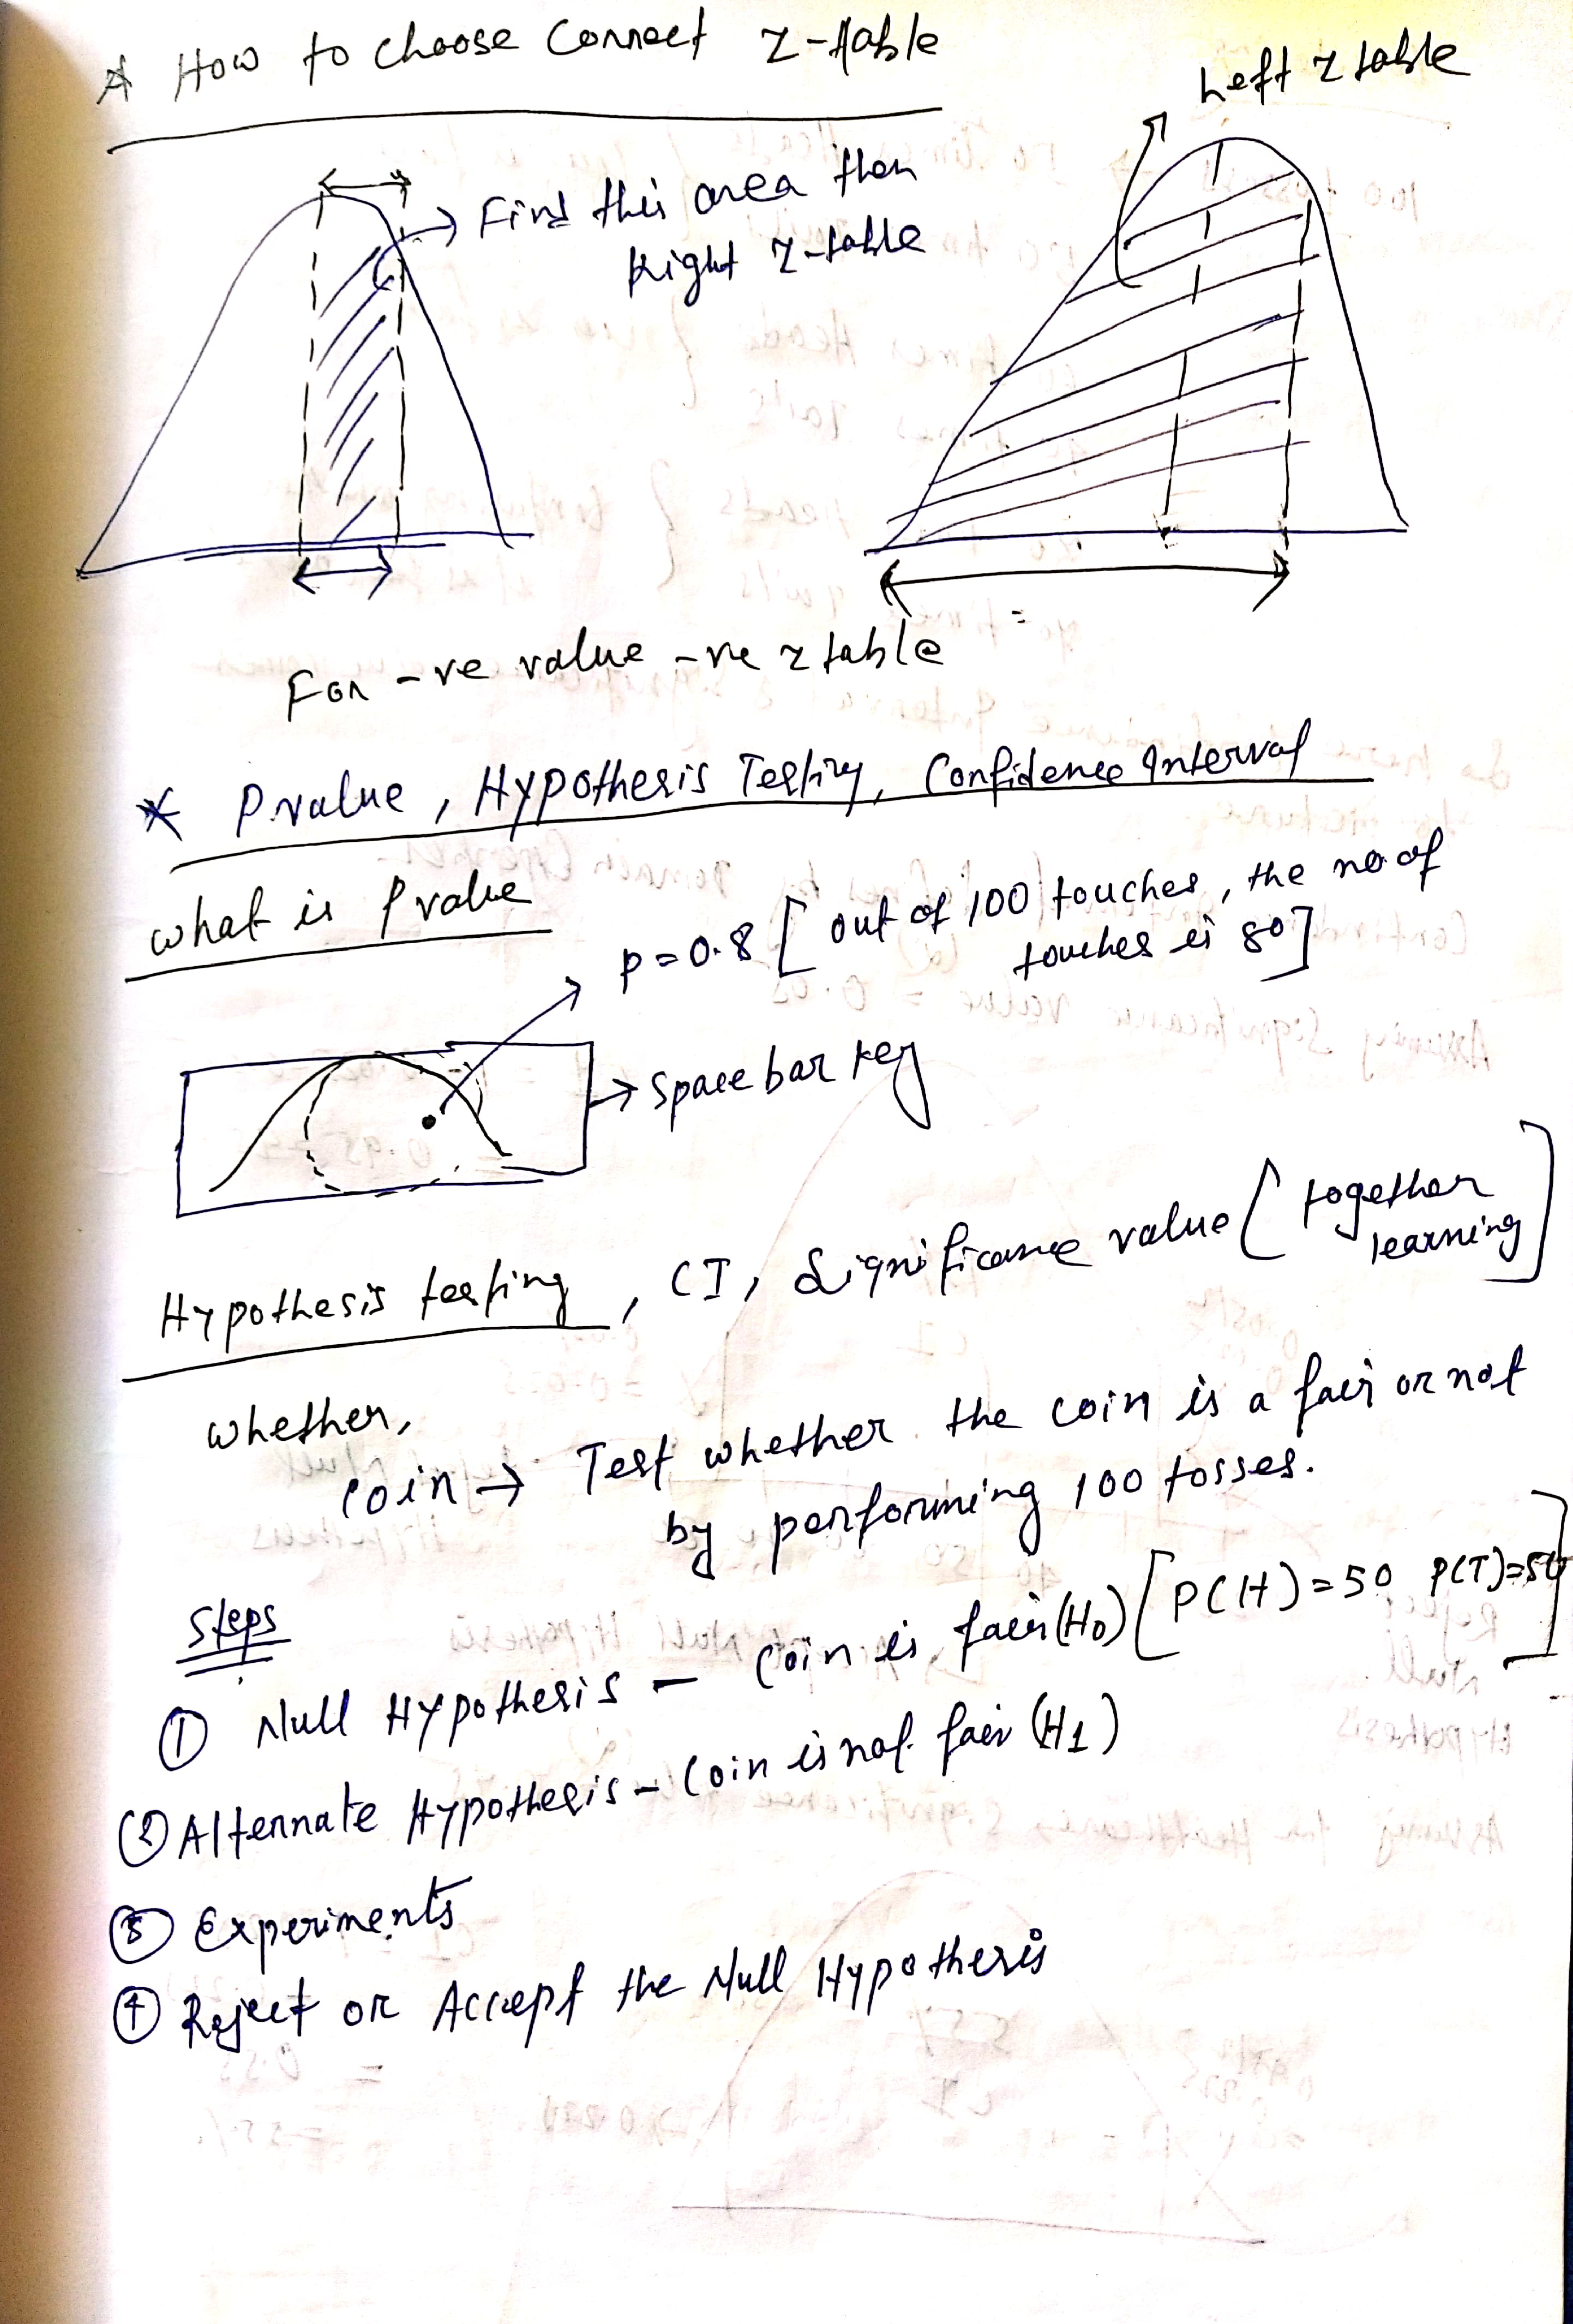 * How to choose Correct Z-table
Left z table
→ Find this area then
Right Z-table
For -ve value -ve z table
* P.value, Hypothesis Testing, Confidence Interval
what is P value
p=0.8 [ out of 100 touches, the no of
touches is 80]
→ Space bar key
Hypothesis testing, CI, Significance value [ together
learning ]
whether,
Coin → Test whether the coin is a fair or not
by performing 100 tosses.
Steps
① Null Hypothesis - Coin is fair (H0) [P(H)=50 P(T)=50]
② Alternate Hypothesis - Coin is not fair (H1)
③ Experiments
④ Reject or Accept the Null Hypothesis